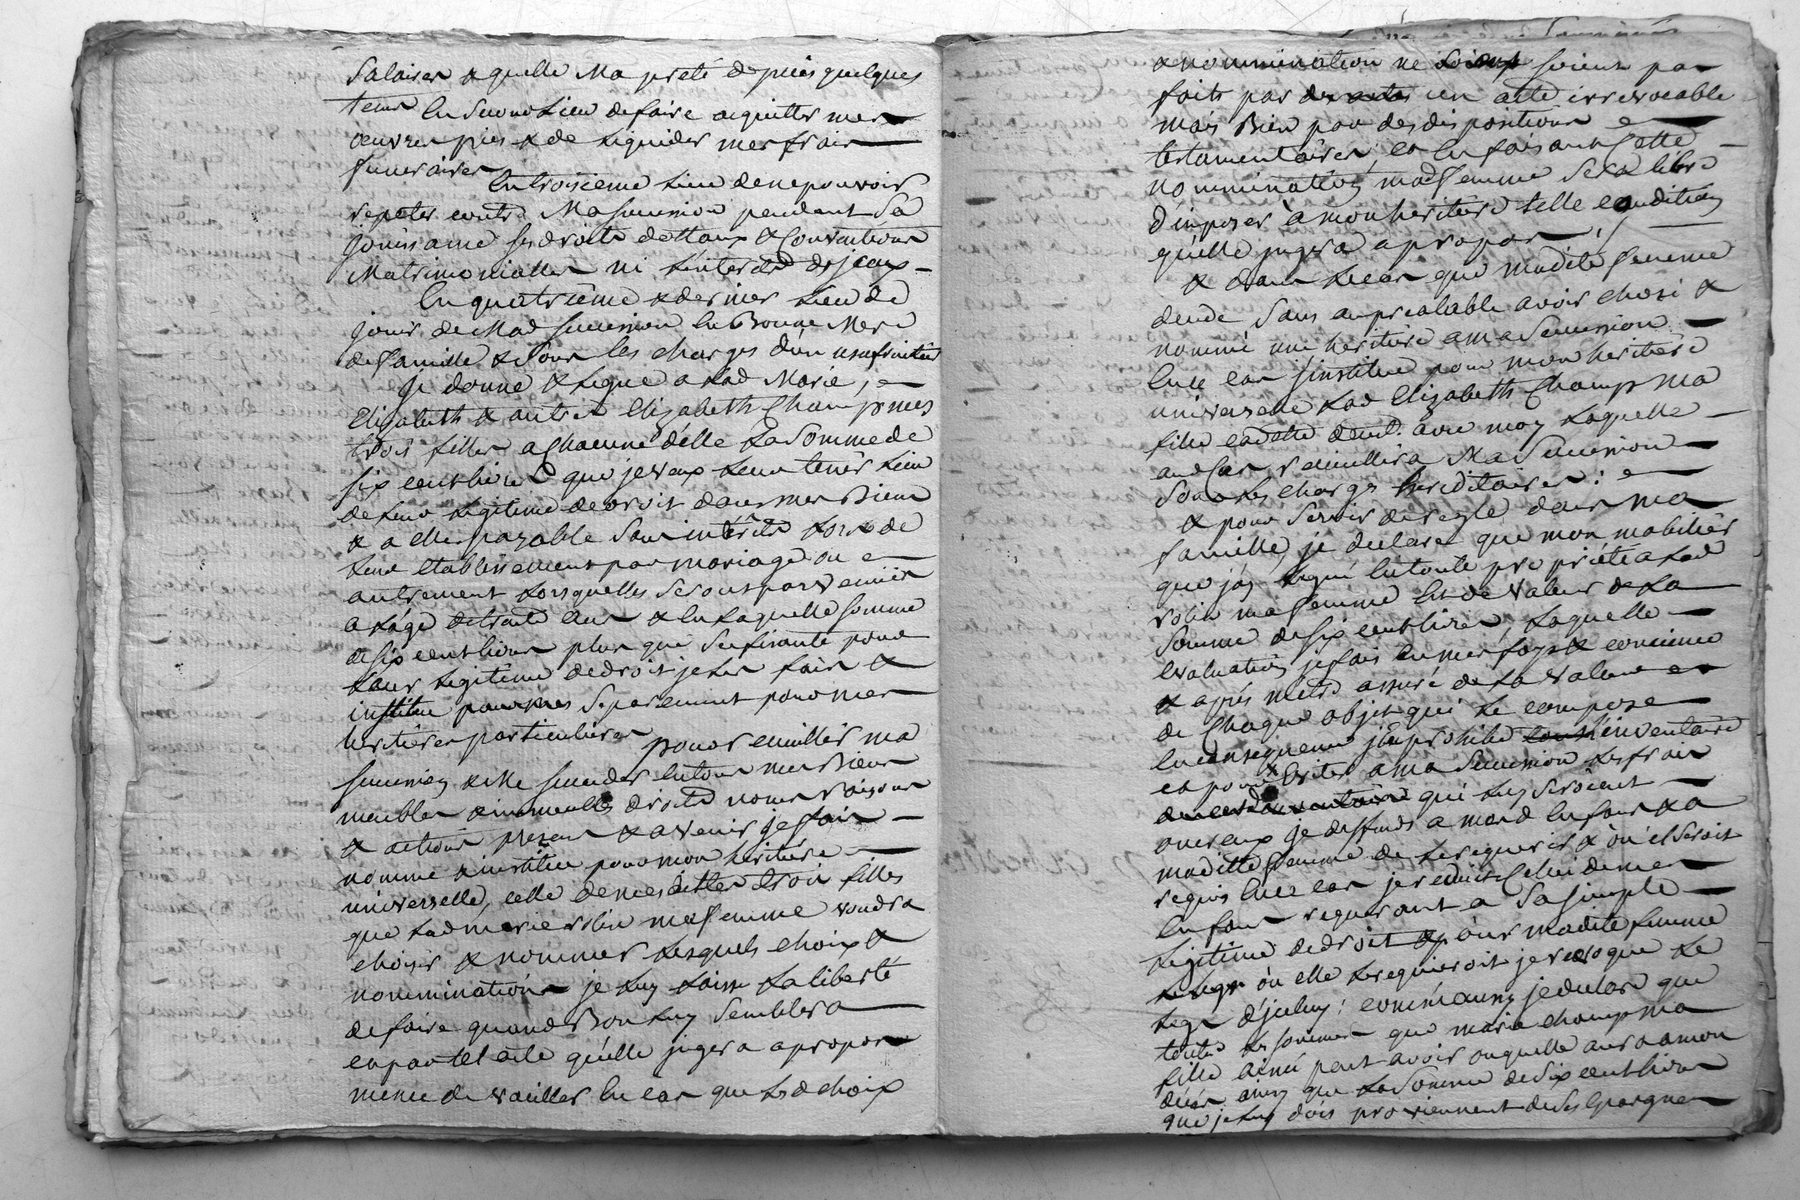 Salaires & quelle Ma preté depuis quelques
tems En second Lieu de faire aquitter mes
œuvres pies & de Liquider mes frais
funeraires
En troisieme Lieu de ne pouvoir
repeter contre Ma succession pendant Sa
jouissance ses droits dottaux & Conventions
Matrimonialles ni Linteret dejceux
En quatrieme & dernier Lieu de
jouir de Mad succession En Bonne Mere
de famille & sous les charges d'un usufruitier
Je donne & Legue a Lad Marie,
Elizabeth & autre Elizabeth Champ mes
trois filles a Chacune d'elle La Somme de
six cent livres que je veux Leur tenir Lieu
de Leur Legitime de droit dans mes Biens
& a elles payable sans interets Lors de
Leur etablissement par mariage ou
autrement Lorsquelles seront parvenues
a Lâge de trente ans & En Laquelle somme
de six cent livres plus que Suffisante pour
Leur Legitime de droit je Les fais &
institue Separement pour mes
heritieres particulieres
pour recuillir ma
succession & Me succeder En tous mes Biens
meubles & immeubles droits noms raisons
& actions presens & avenir je fais
nomme & institue pour mon heritiere
universelle, celle de mes trois filles
que Lad marie robin ma femme voudra
choisir & nommer Lesquels choix &
nomination je Luy Laisse La liberté
de faire quand Bon Luy Semblera
et par tel acte qu'elle jugera a propos
meme de vaciller En cas que Les d choix
& nomination ne soient par
faits par un acte irrevocable
mais Bien par des dispositions
testamentaires; et En faisant Cette
nomination mad femme Sera libre
d'imposer a mon heritiere telle condition
qu'elle jugera a propos
& dans Le cas que madite femme
decede Sans au prealable avoir choisi &
nommé une heritiere a ma Succession
En ce cas j'institue pour mon heritiere
universelle Lad Elizabeth Champ ma
fille cadette avec moy Laquelle
aud Cas recuillira Ma Succession
Sous Les charges hereditaires:
& pour Servir de regle dans ma
famille, je declare que mon mobilier
que j'ay Legué En toute proprieté a Lad
robin ma femme Est de valeur de La
Somme de six cent livres, Laquelle
evaluation je fais En mes foy & concience
& après m'etre assuré de La valeur
de Chaque objet qui Le compose
En consequence j'En prohibe L'inventaire
et pour Eviter a ma Succession Les frais
qui Luy seroient
onereux je deffends a mesd Enfans & a
maditte femme de Le requerir & où il seroit
requis En ce cas je reduis Celui de mes
Enfans requerant a Sa simple
Legitime de droit & où madite femme
Le requieroit je revoque Le
Legs d'jceluy: je declare que
toutes Les sommes que marie champ ma
fille ainée peut avoir ou quelle aura a mon
deces ainsy que La Somme de Six cent livres
que je Luy dois proviennent de Ses Epargnes